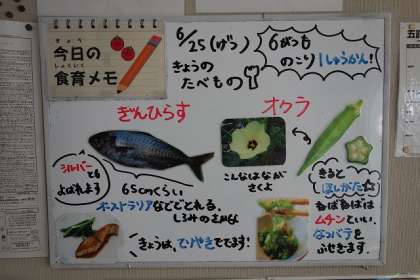 きょう
今日の
しょくいく
食育メモ
6/25(げつ)
きょうの
たべもの
6がつも
のこり1しゅうかん!
ぎんひらす
シルバーとも
よばれます
65cmくらい
オーストラリアなどでとれる、
しろみのさかな
きょうは、てりやきででます!
オクラ
こんなはなが
さくよ
きると
ほしがた☆
ねばねばは
ムチンといい、
なつバテを
ふせぎます。